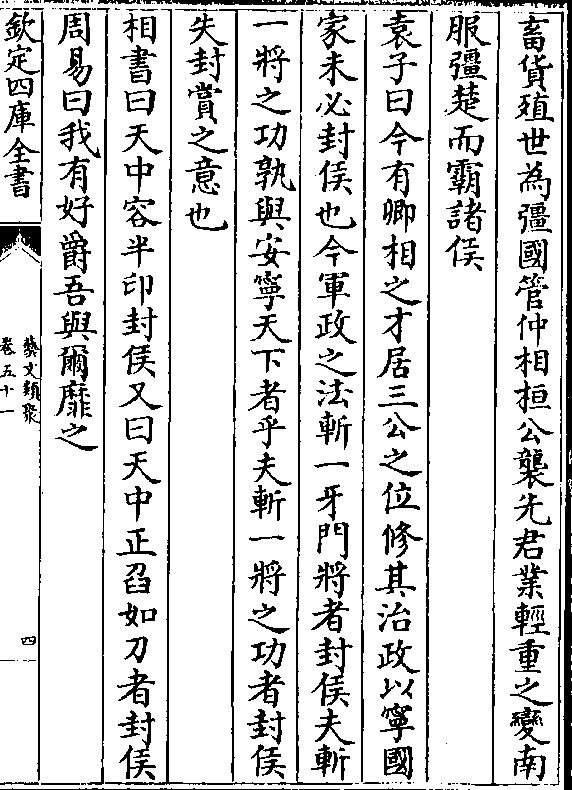 畜貨殖世為彊國管仲相桓公襲先君業輕重之變南
服彊楚而霸諸侯
袁子曰今有卿相之才居三公之位修其治政以寧國
家未必封侯也今軍政之法斬一牙門將者封侯夫斬
一將之功孰與安寧天下者乎夫斬一將之功者封侯
失封賞之意也
相書曰天中容半印封侯又曰天中正召如刀者封侯
周易曰我有好爵吾與爾靡之
欽定四庫全書
藝文類聚
卷五十一
四